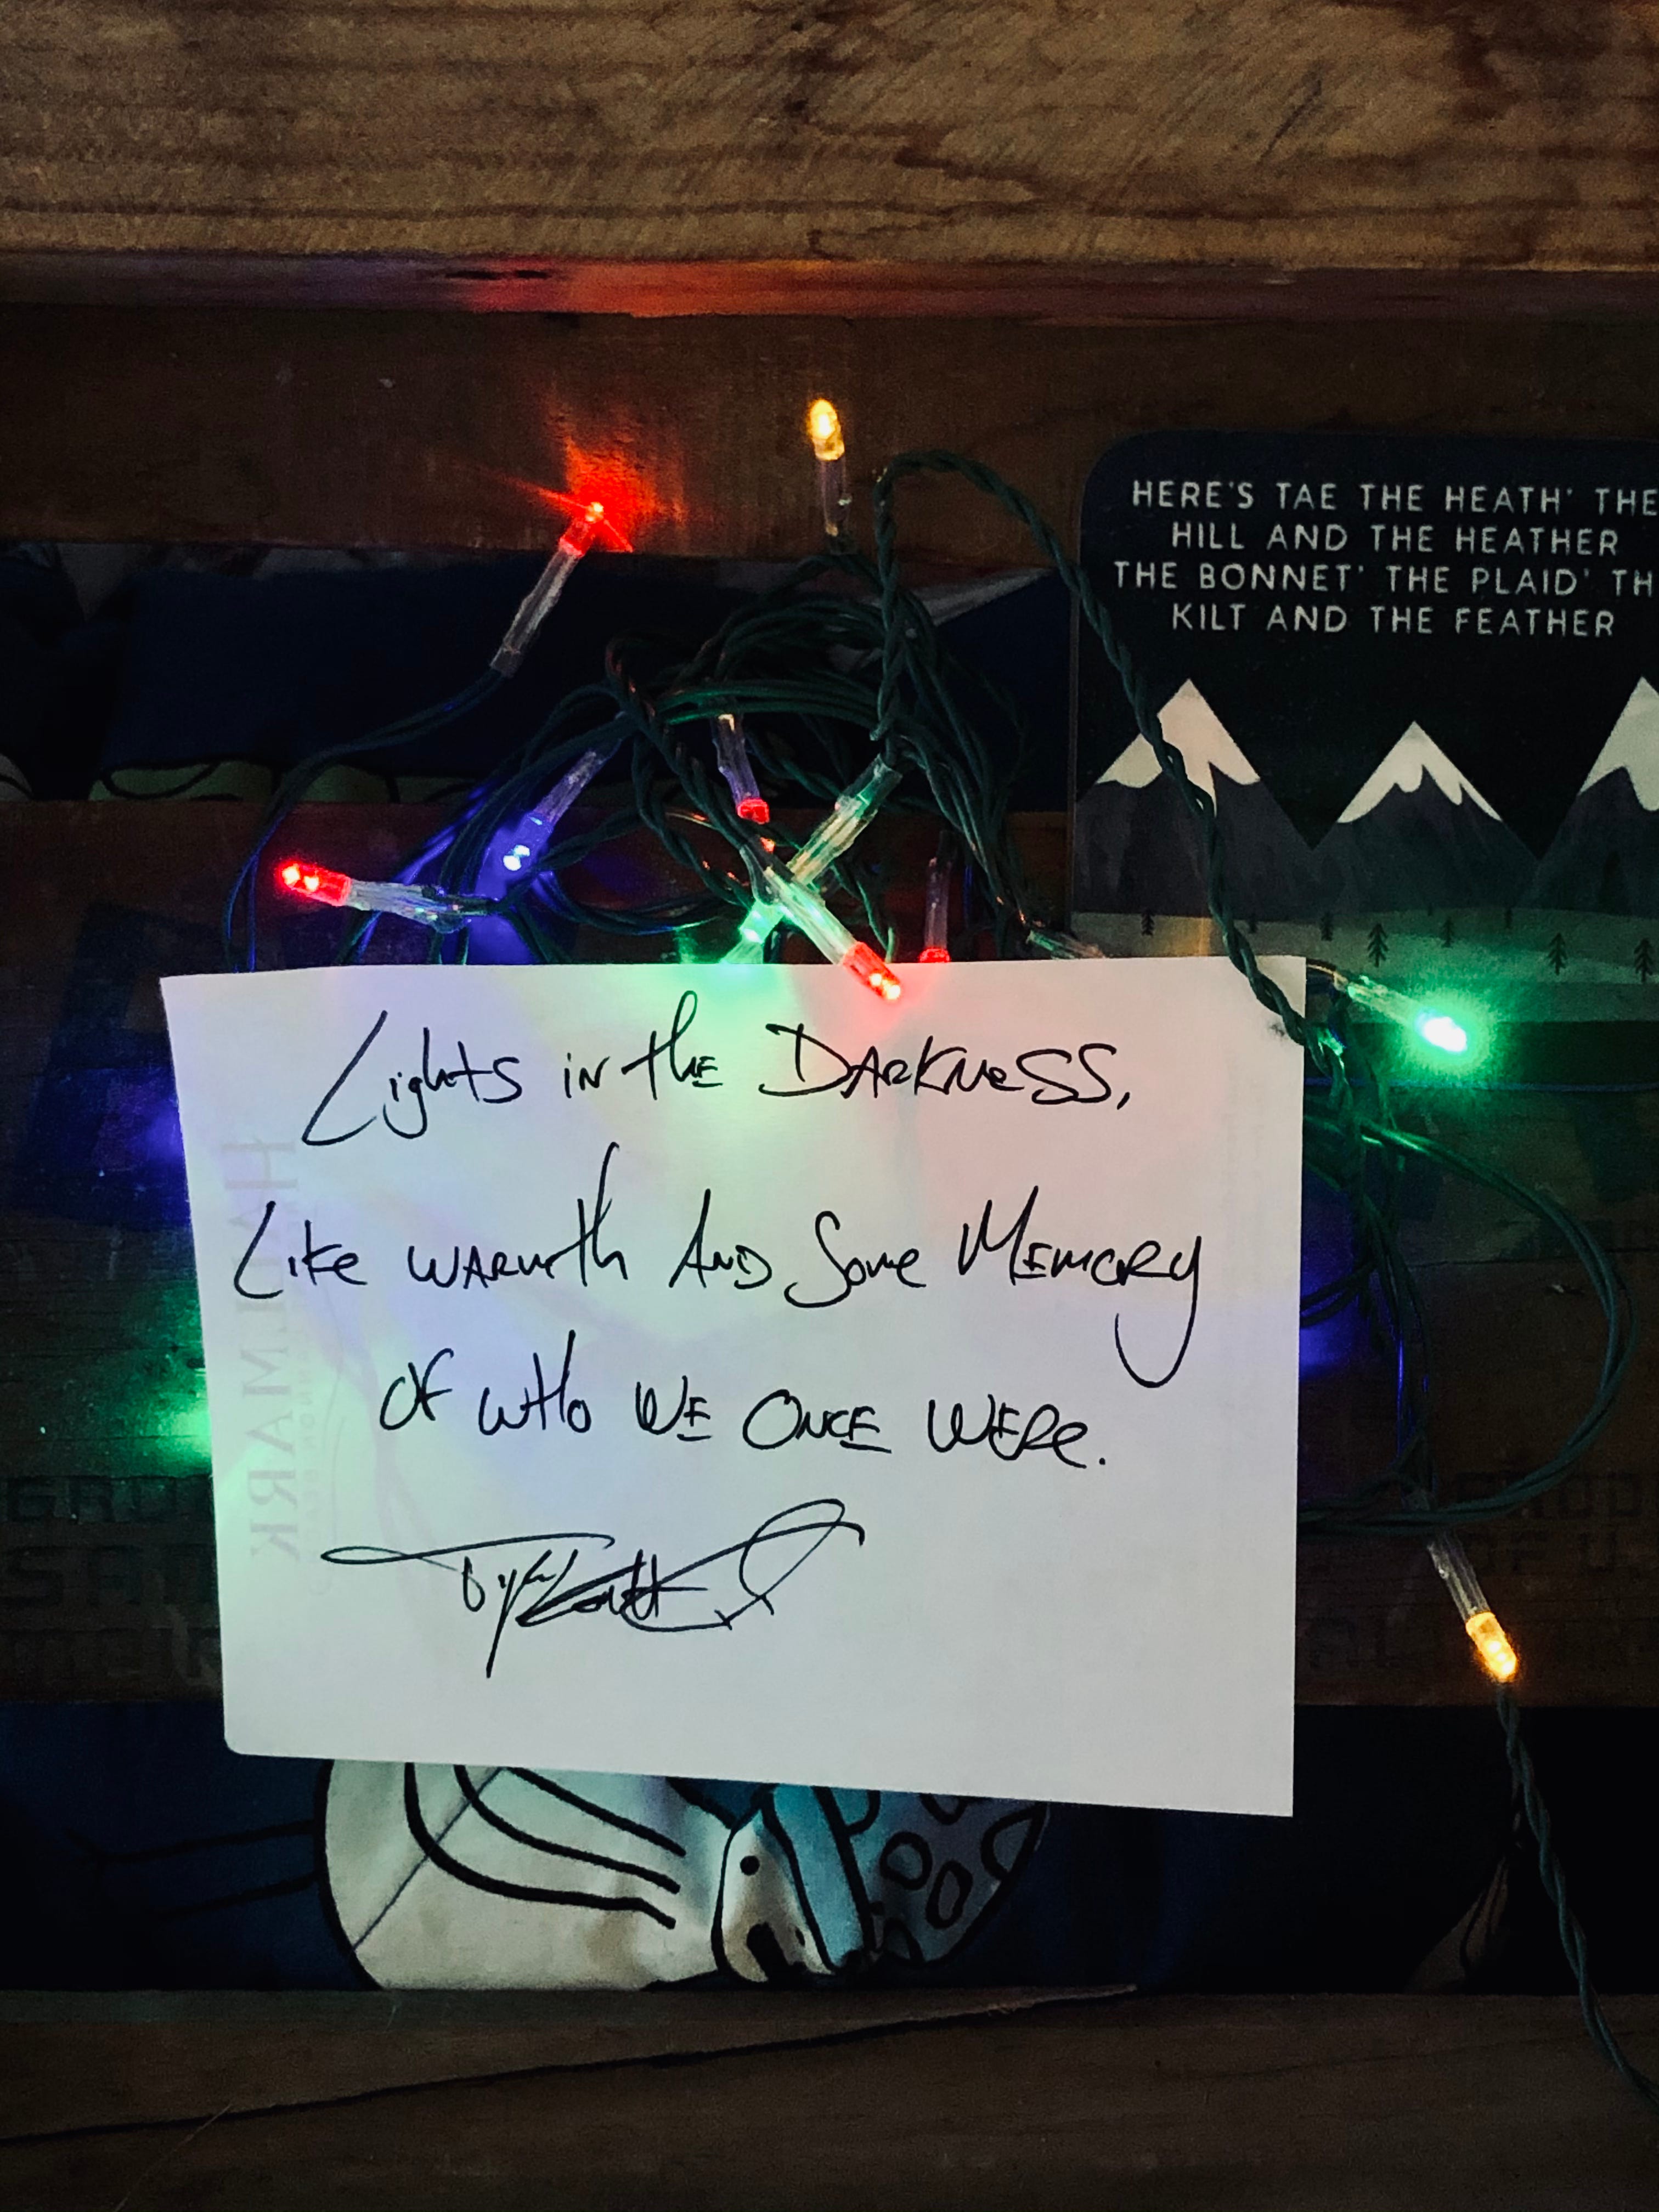 HERE'S TAE THE HEATH' THE
HILL AND THE HEATHER
THE BONNET' THE PLAID' TH
KILT AND THE FEATHER
Lights in the Darkness,
Like warmth And Some Memory
of who we once were.
HALLMARK